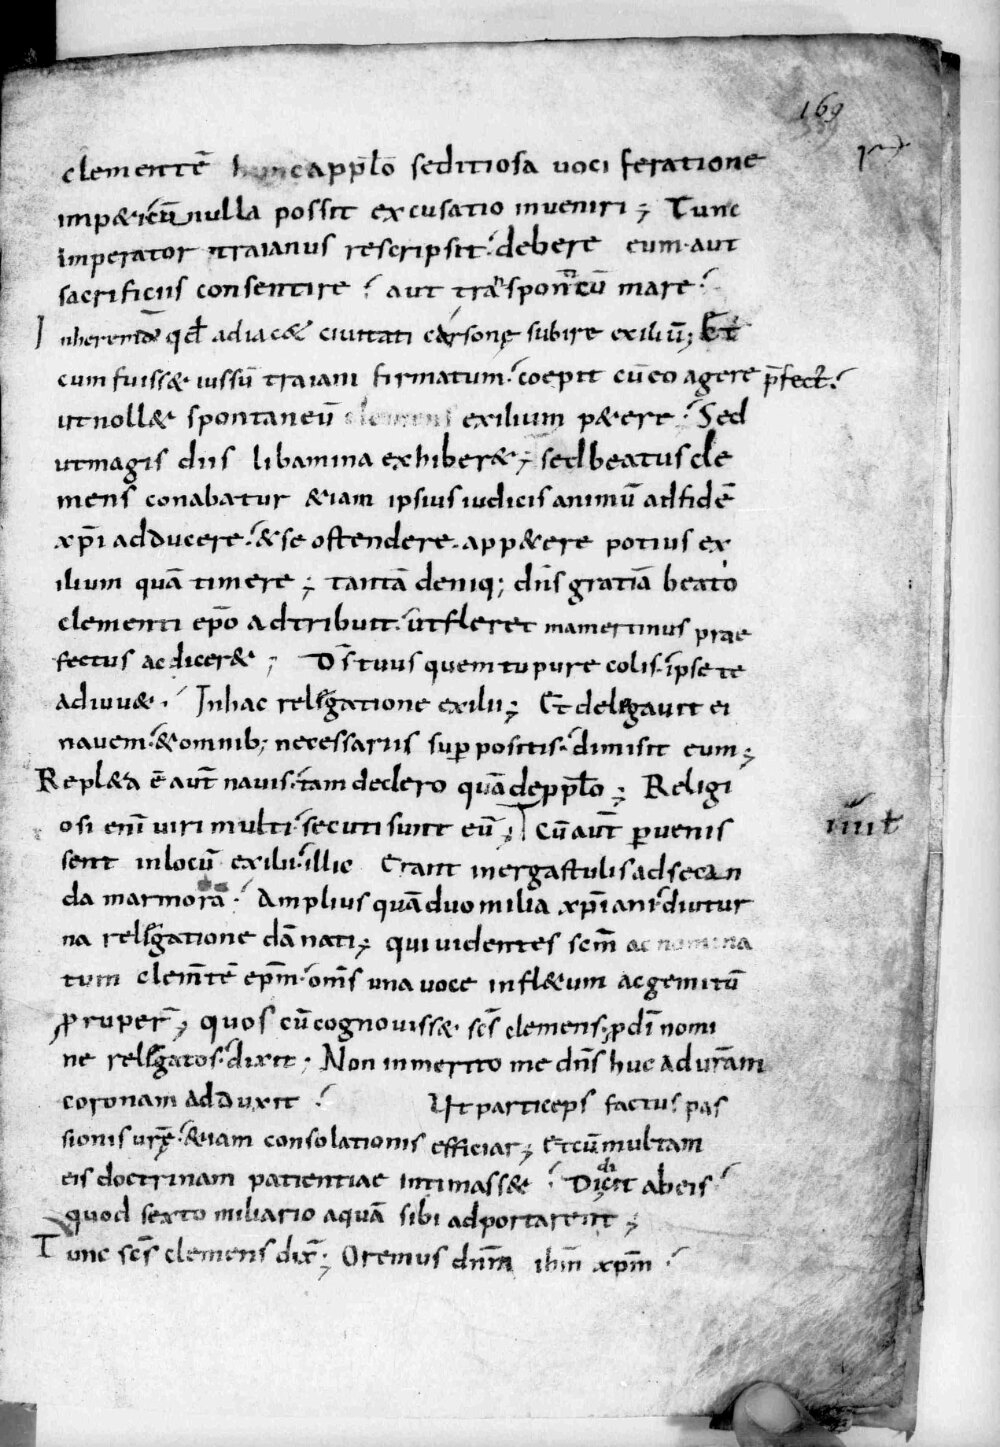 169
clementē hunc app̄lō seditiosa uoci feratione
imp&i cū nulla possit excusatio inueniri; Tunc
imperator traianus rescripsit. debere eum aut
sacrificiis consentire. aut trās pontū mare.
Inherema qđ adiac& ciuitati cersonę subire exiliū; Et
cum fuiss& iussū traiani firmatum. coepit cū eo agere p̄fect.
ut noll& spontaneū clemens exilium p&ere. Sed
ut magis diis libamina exhiber&; sed beatus cle
mens conabatur &iam ipsius iudicis animū ad fidē
xp̄i adducere. & se ostendere. app&ere potius ex
ilium quā timere; tantā deniq; dn̄s gratiā beato
clementi ep̄o adtribuit. ut fleret mamertinus prae
fectus ac dicer&; Ds̄ tuus quem tu pure colis. ipse te
adiuu&. In hac religatione exilii; Et delegauit ei
nauem. & omnib; necessariis superpositis. dimisit eum;
Repl&a ē aut̄ nauis. tam de clero quā de pp̄lo; Religi
osi enī uiri multi. secuti sunt eū; Cū aut̄ peruenis
sent in locū exilii. illic Erant in ergastulis ad secan
da marmora. Amplius quā duo milia xp̄iani. diutur
na religatione dānati; qui uidentes scm̄ ac nomina
tum clem̄tē ep̄m. om̄s una uoce in fl&um ac gemitū
proruper̄; quos cū cognouiss& scs̄ clemens. p dī nomi
ne religatos. dixit; Non inmerito me dn̄s huc ad urām
coronam adduxit. Ut particeps factus pas
sionis urę̄. &iam consolationis efficiar; Et cū multam
eis doctrinam patientiae intimass&. Dicit ab eis.
quod sexto miliario aquā sibi adportarent;
Tunc scs̄ clemens dix̄; Oremus dnm̄ ihm̄ xpm̄.